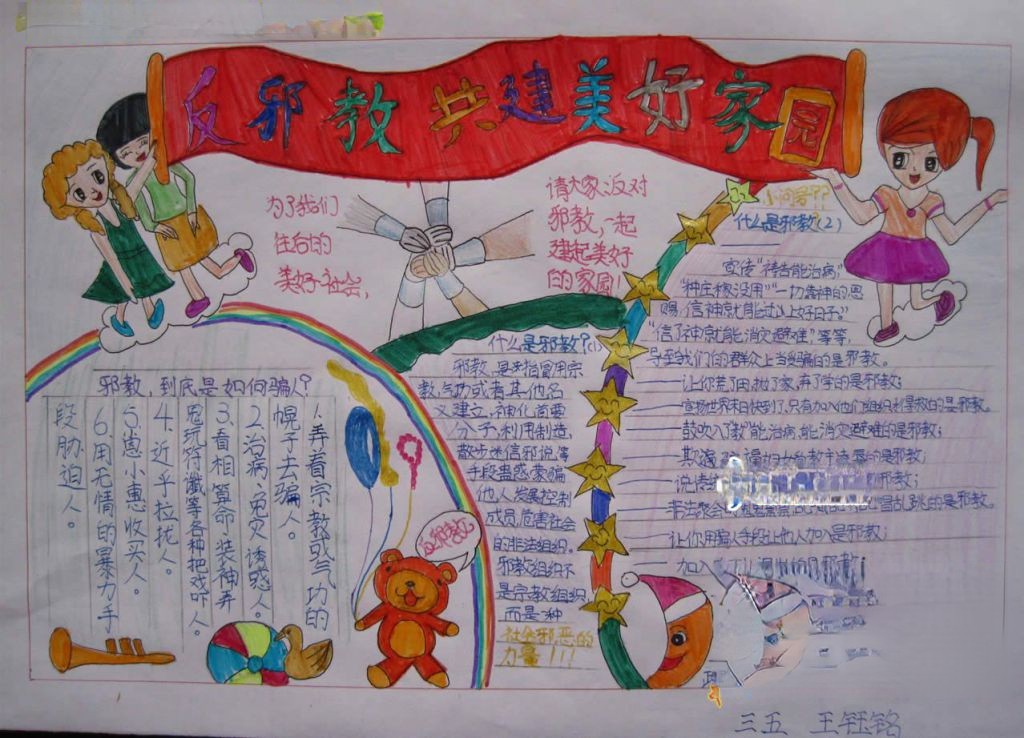 反邪教 共建美好家园
为了我们
住后的
美好社会,
请大家反对
邪教,一起
建起美好
的家园!
邪教,到底是如何骗人?
1.弄着宗教或气功的
幌子去骗人。
2.治病、免灾诱惑人。
3.看相算命、装神弄
鬼玩符谶等各种把戏吓人。
4.近乎拉拢人。
5.崽小惠收买人。
6.用无情的暴力手
段胁迫人。
反邪教
什么是邪教?(1)
邪教,是指冒用宗
教,气功或者其他名
义建立,神化首要
分子,利用制造,
散步迷信邪说,等
手段蛊惑蒙骗
他人,发展控制
成员,危害社会
的非法组织。
邪教组织不
是宗教组织
而是一种
社会邪恶的
力量!!!
什么是邪教(2)
宣传“祷告能治病;”
“种庄稼没用”“一切靠神的恩
赐,信神就能过以上好日子。”
“信了神就能消灾避难”等等,
导至我们的群众上当受骗的是邪教。
——让你荒了田,抛了家,弃了学的是邪教;
——宣扬世界末日快到了,只有加入他们组织才是救的是邪教。
——鼓吹入了教“能治病、能消灾避难的是邪教;
妇女给教主凌辱的是邪教;
邪教;
——非法聚会
是邪教。
——让你用骗人手段让他人加入是邪教;
——加入
三五 王钰铭